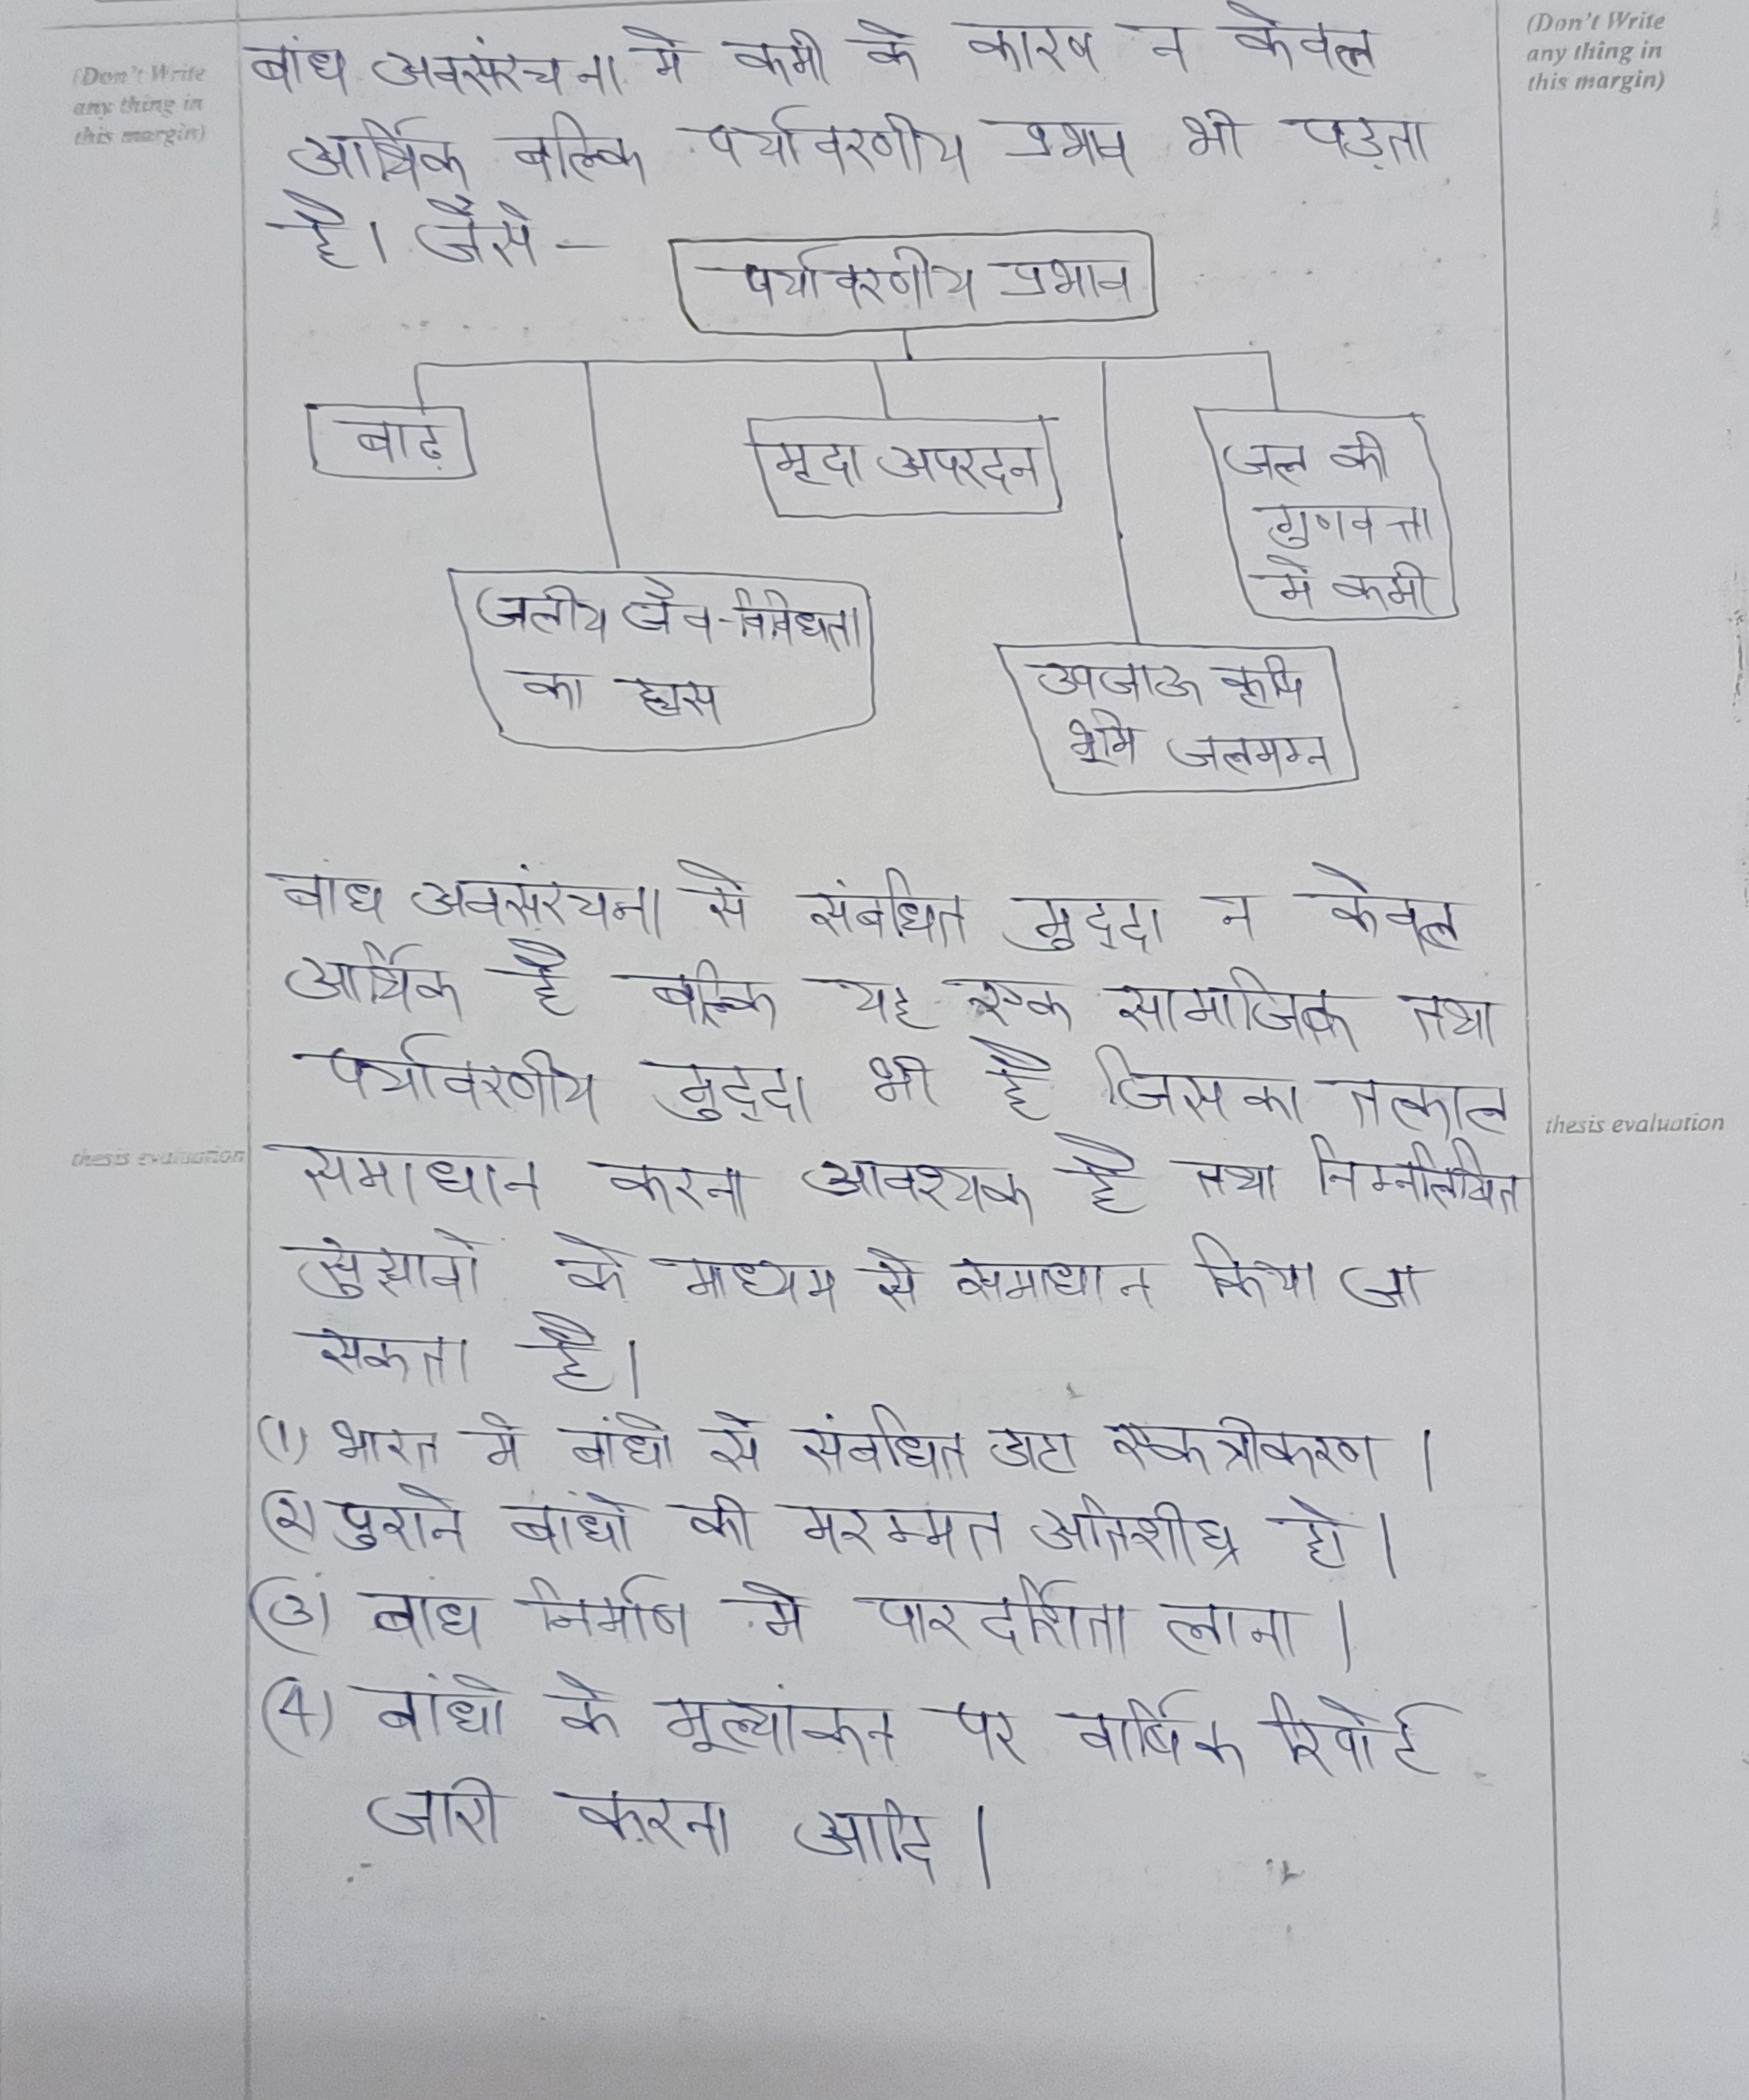 (Don't Write
any thing in
this margin)
(Don't Write
any thing in
this margin)
बांध अवसंरचना में कमी के कारण न केवल
आर्थिक बल्कि पर्यावरणीय प्रभाव भी पड़ता
है। जैसे -
पर्यावरणीय प्रभाव
बाढ़
मृदा अपरदन
जल की
गुणवत्ता
में कमी
जलीय जैव-विविधता
का ह्रास
उपजाऊ कृषि
भूमि जलमग्न
बांध अवसंरचना से संबंधित मुद्दा न केवल
आर्थिक है बल्कि यह एक सामाजिक तथा
पर्यावरणीय मुद्दा भी है जिसका तत्काल
समाधान करना आवश्यक है तथा निम्नलिखित
सुझावों के माध्यम से समाधान किया जा
सकता है।
thesis evaluation
thesis evaluation
(1) भारत में बांधों से संबंधित डाटा एकत्रीकरण।
(2) पुराने बांधों की मरम्मत अतिशीघ्र हो।
(3) बांध निर्माण में पारदर्शिता लाना।
(4) बांधों के मूल्यांकन पर वार्षिक रिपोर्ट
जारी करना आदि।